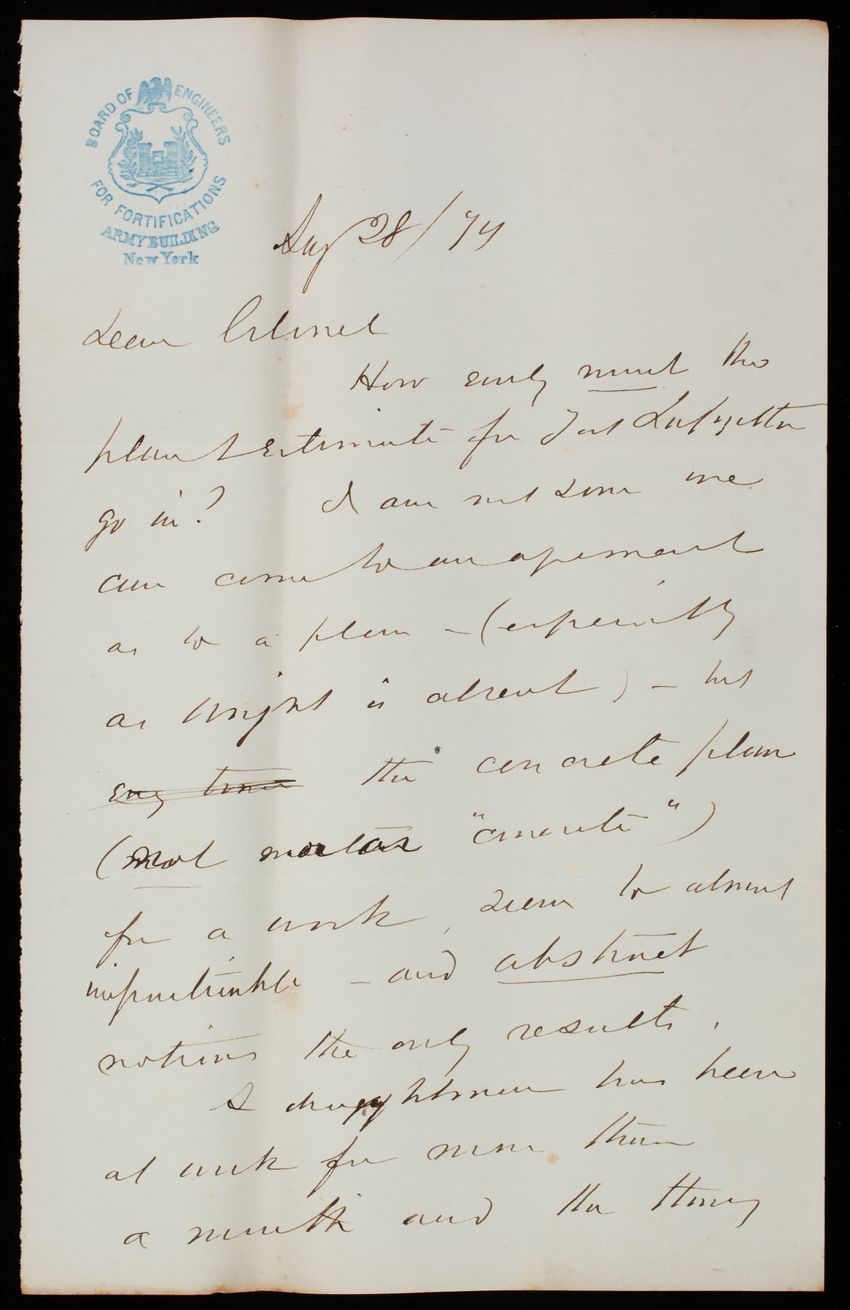 BOARD OF ENGINEERS
FOR FORTIFICATIONS
ARMY BUILDING
New York
Aug 28/74
Dear Colonel
How early must the
plan & Estimate for Fort Lafayette
go in? I am not sure we
can come to an agreement
as to a plan - (especially
as Wright is absent) - but
the concrete plan
(not mortar "concrete")
for a work, seem to almost
- and abstract
notions the only results.
A draughtsman has been
at work for more than
a month and the thing